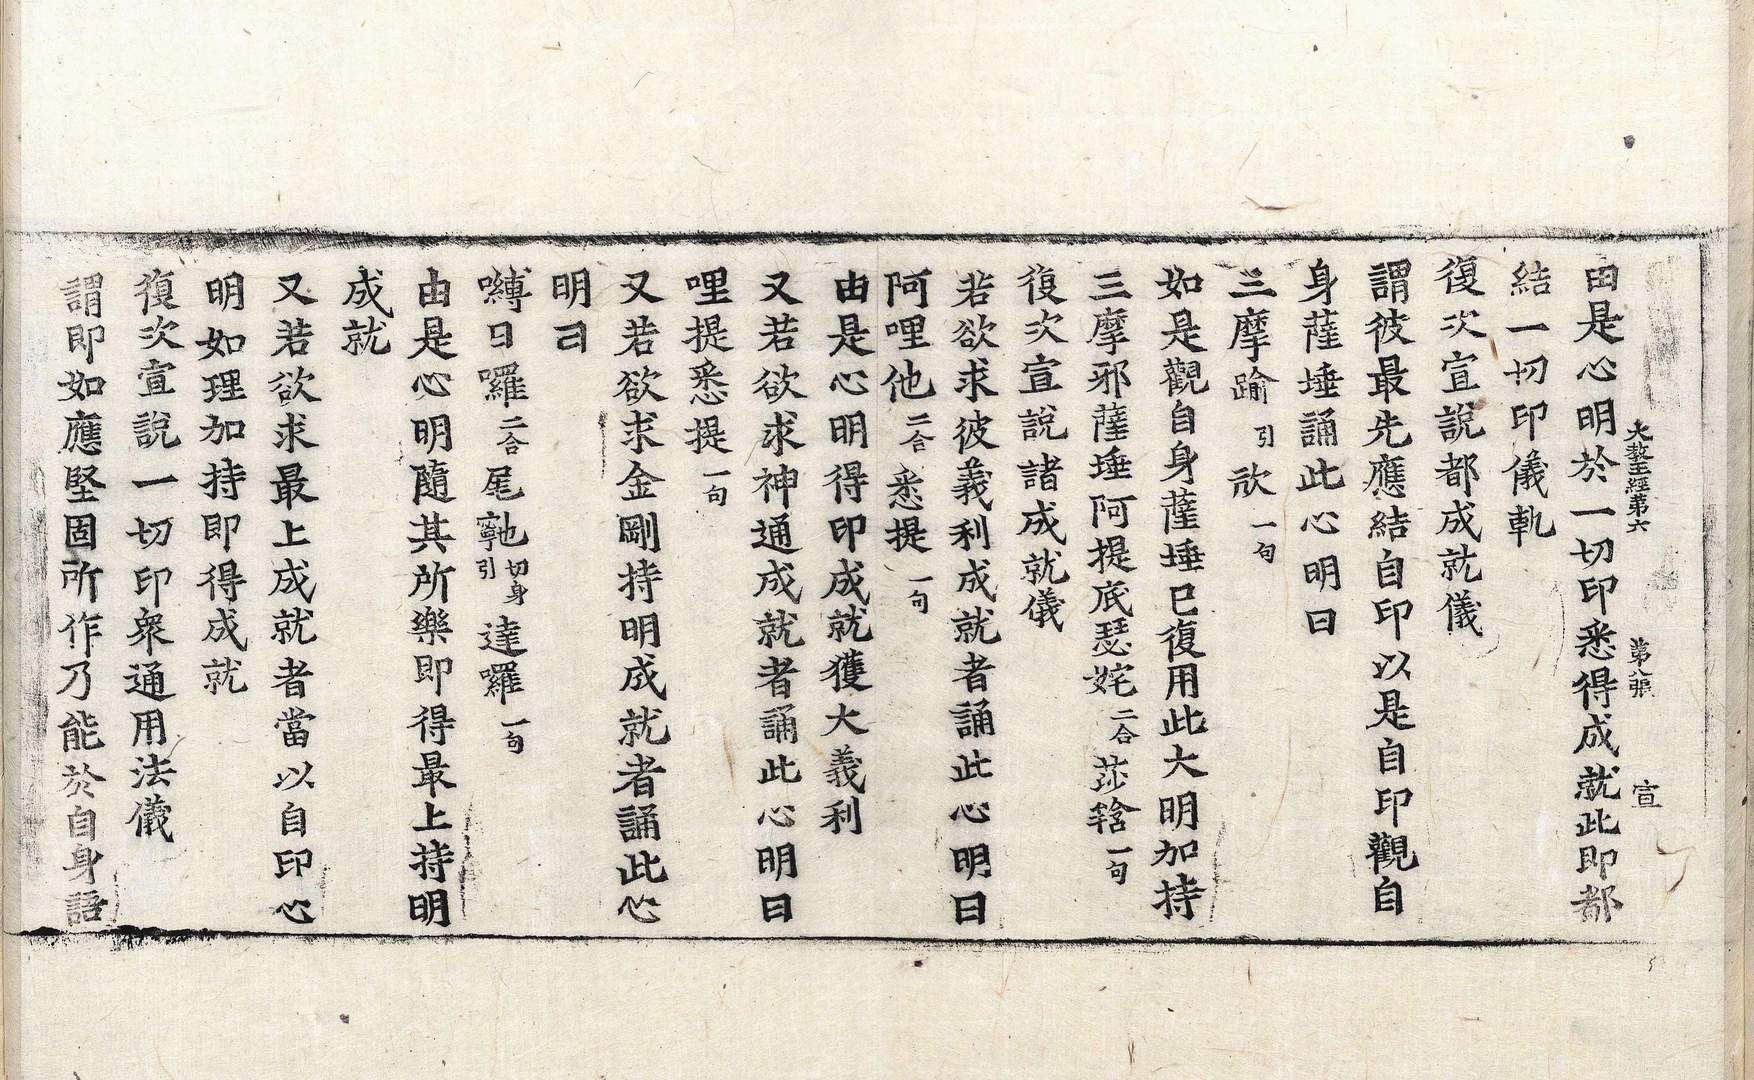 大教王經第六 第八張 宣
由是心明於一切印悉得成就此即都
結一切印儀軌
復次宣說都成就儀
謂彼最先應結自印以是自印觀自
身薩埵誦此心明曰
三摩踰引欱一句
如是觀自身薩埵已復用此大明加持
三摩邪薩埵阿提底瑟姹二合莎𤚥一句
復次宣說諸成就儀
若欲求彼義利成就者誦此心明曰
阿哩他二合悉提一句
由是心明得印成就獲大義利
又若欲求神通成就者誦此心明曰
哩提悉提一句
又若欲求金剛持明成就者誦此心
明曰
嚩日囉二合尾𪧀切身引達囉一句
由是心明隨其所樂即得最上持明
成就
又若欲求最上成就者當以自印心
明如理加持即得成就
復次宣說一切印衆通用法儀
謂即如應堅固所作乃能於自身語